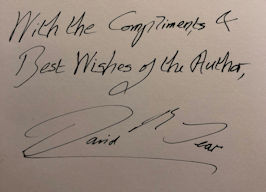 With the Compliments &
Best Wishes of the Author,
David